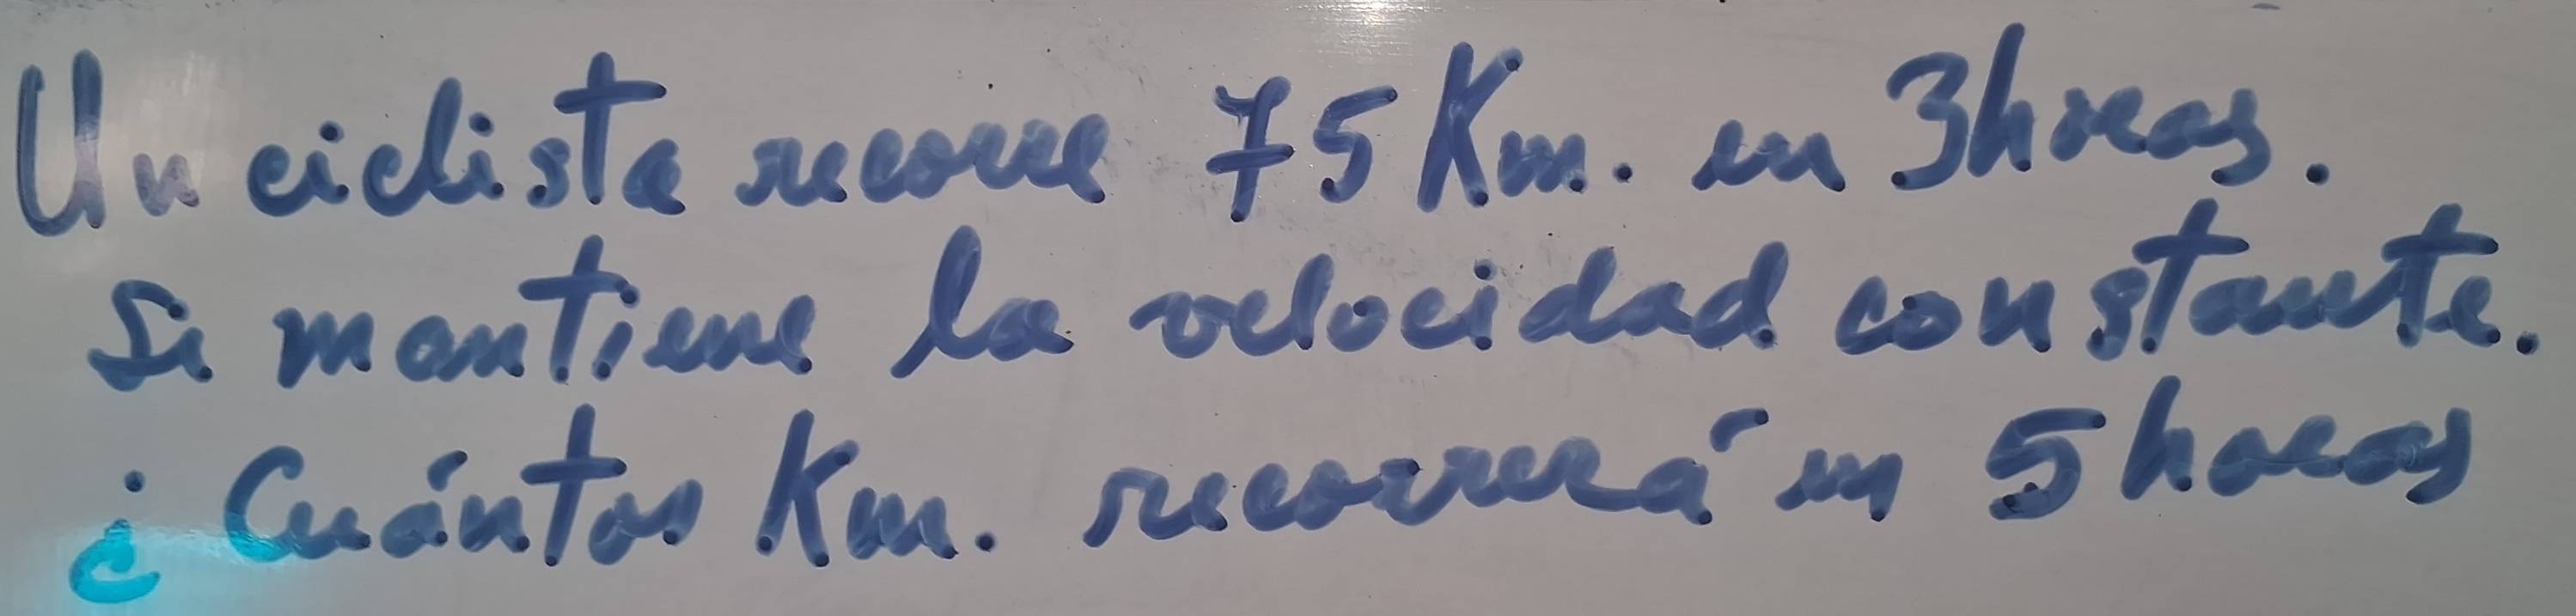 Un ciclista recorre 75 Km. en 3 horas.
Si mantiene la velocidad constante.
¿Cuántos Km. recorrerá en 5 horas